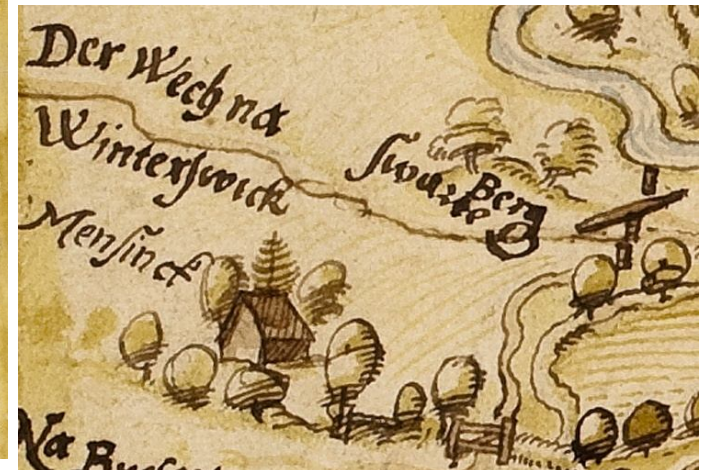 Der Wech na
Winterswick
Swarte
Berg
Mensinck
Na